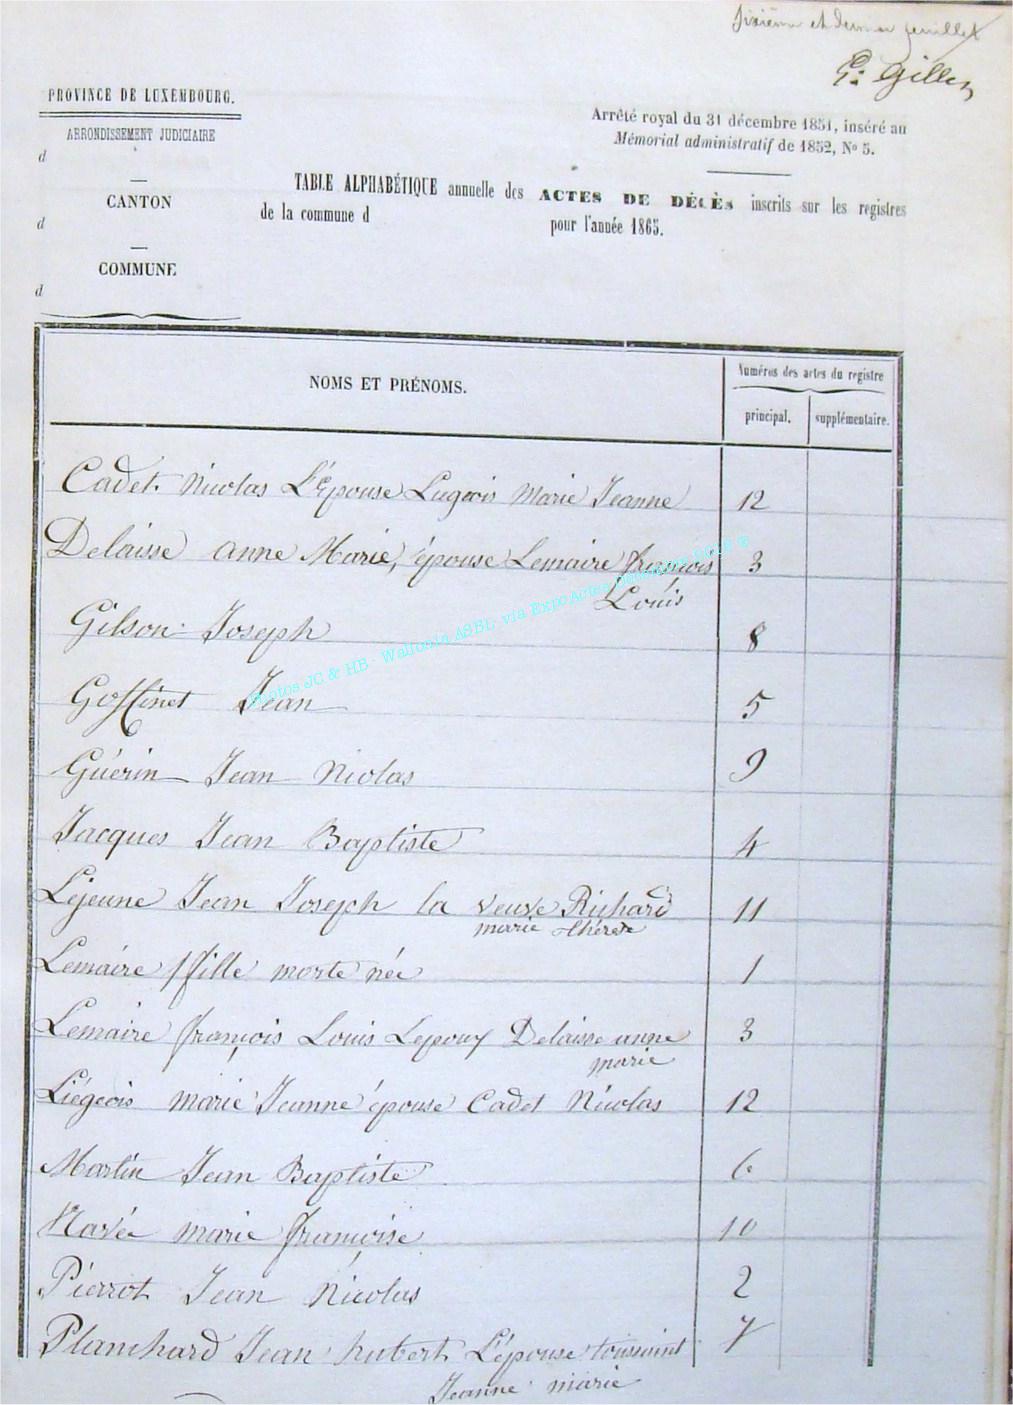 Sixième et dernier feuillet
G: Gilles
PROVINCE DE LUXEMBOURG.
ARRONDISSEMENT JUDICIAIRE
d
CANTON
d
COMMUNE
d
Arrêté royal du 31 décembre 1851, inséré au
Mémorial administratif de 1852, No 5.
TABLE ALPHABÉTIQUE annuelle des ACTES DE DÉCÈS inscrits sur les registres
de la commune d pour l'année 1865.
NOMS ET PRÉNOMS.
Numéros des actes du registre
principal. supplémentaire.
Cadet Nicolas L'Epouse Liegeois Marie Jeanne 12
Delaisse anne Marie, épouse Lemaire françois 3
Louis
Gilson Joseph 8
Goffinet Jean 5
Guérin Jean Nicolas 9
Jacques Jean Baptiste 4
Lejeune Jean Joseph la veuve Richard 11
marie thérèse
Lemaire 1 fille morte née 1
Lemaire françois Louis Lepoux Delaisse anne 3
marie
Liégeois marie Jeanne épouse Cadet Nicolas 12
Martin Jean Baptiste 6
marie françoise 10
Pierrot Jean Nicolas 2
Planchard Jean hubert L'épouse toussaint 7
Jeanne marie
Photos JC & HB - Wallonia ASBL, via ExpoActes